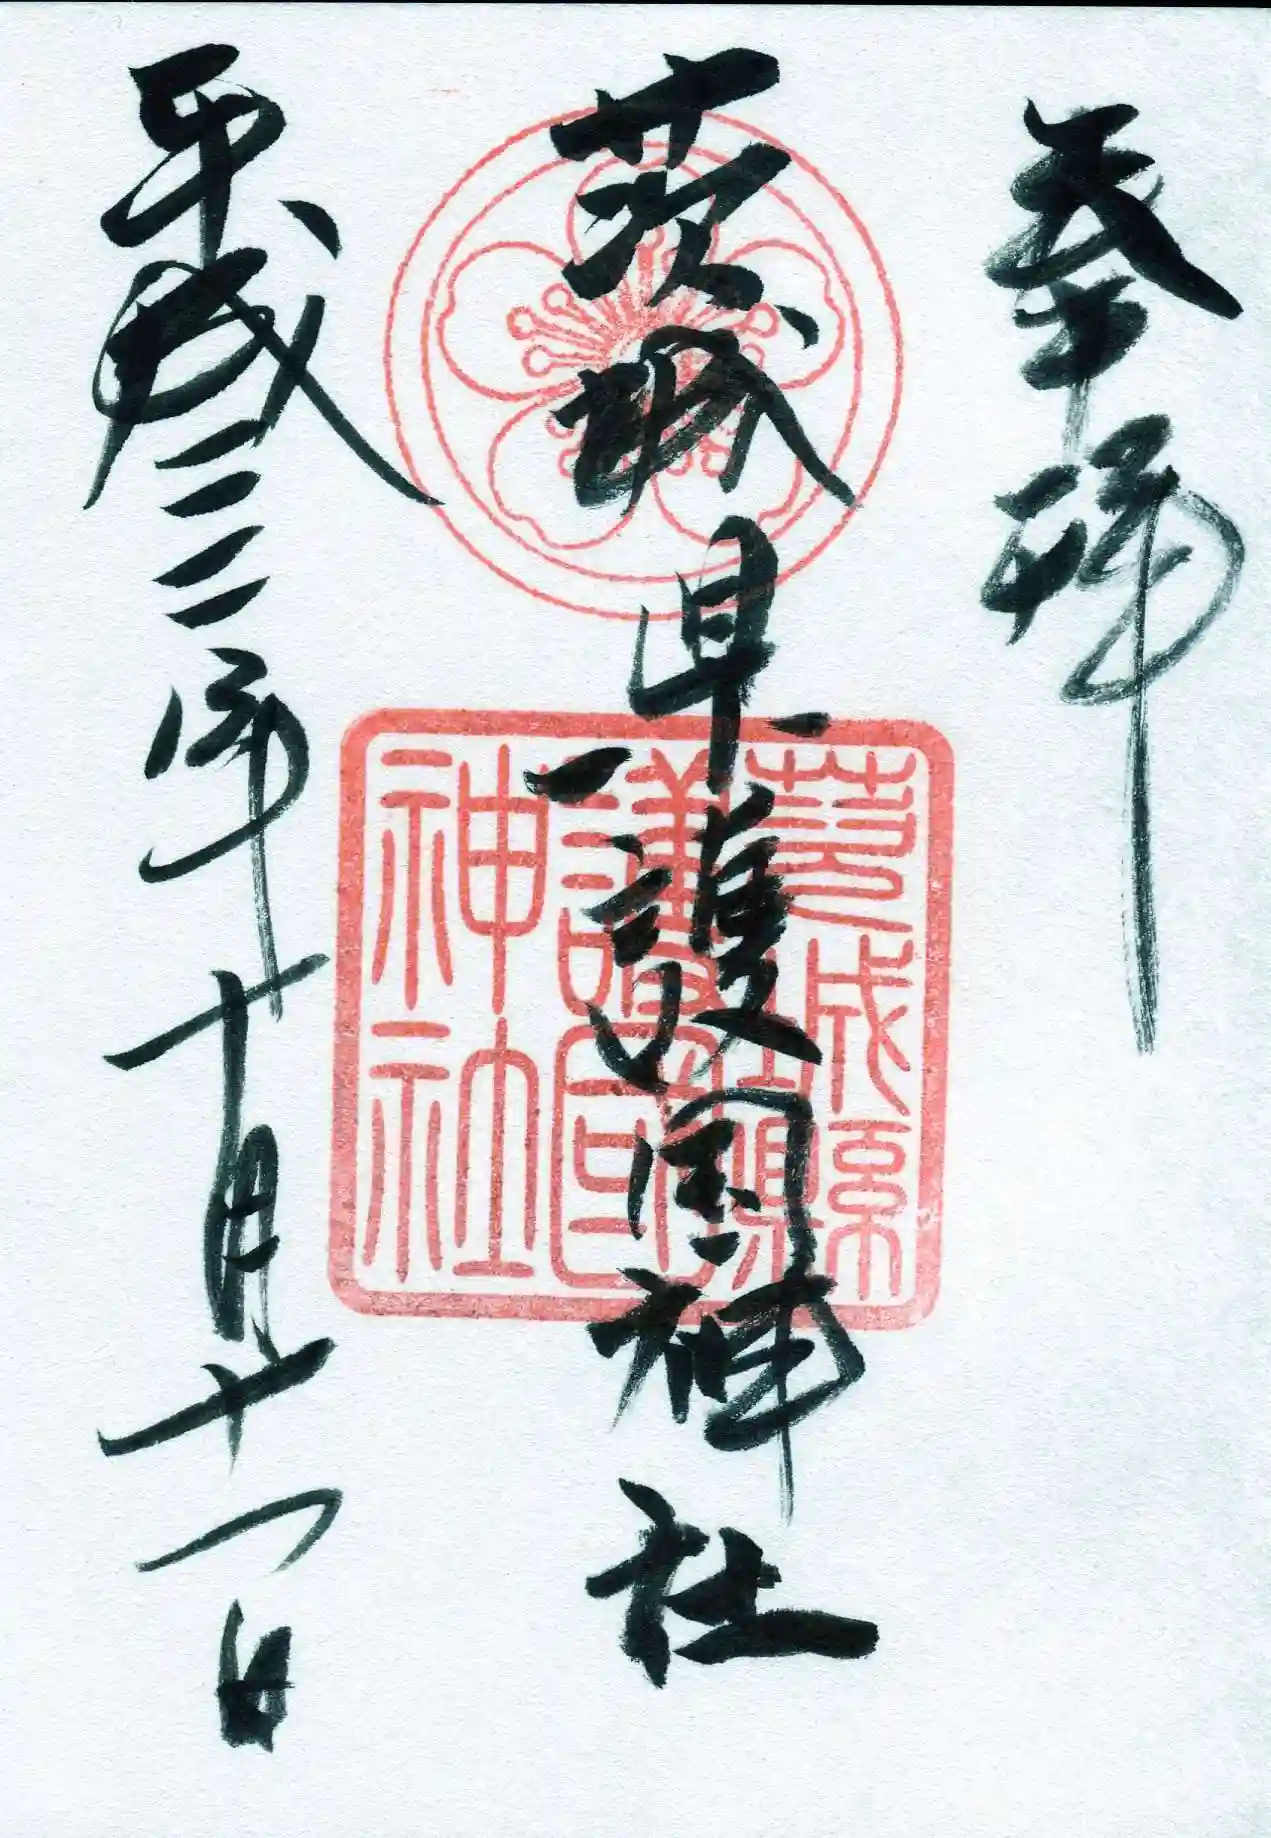 奉拝
茨城県護国神社
平成二二年十月十一日
茨城縣
護國
神社